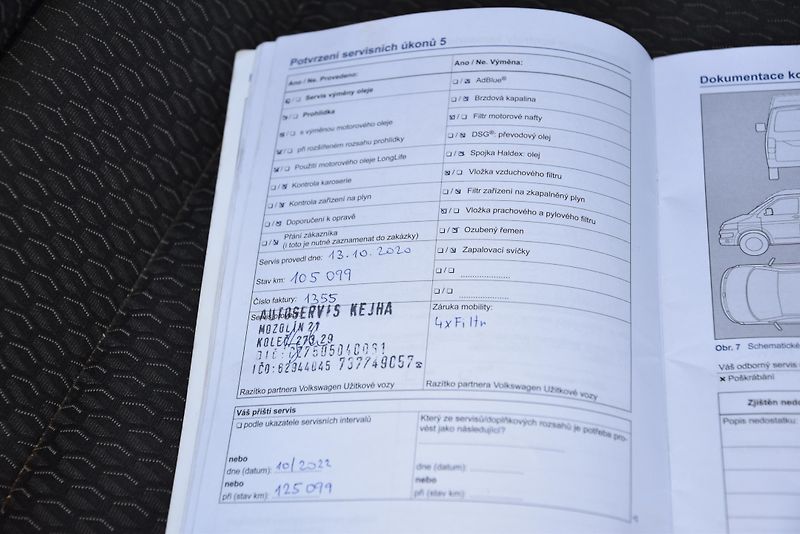 Potvrzení servisních úkonů 5
Ano / Ne. Provedeno:
Servis výměny oleje
Prohlídka
s výměnou motorového oleje
při rozšířeném rozsahu prohlídky
Použití motorového oleje LongLife
Kontrola karoserie
Kontrola zařízení na plyn
Doporučení k opravě
Přání zákazníka
(i toto je nutné zaznamenat do zakázky)
Servis provedl dne: 13.10.2020
Stav km: 105 099
Číslo faktury: 1355
AUTOSERVIS KEJHA
MOZOLÍN 21
KOLEČ 273 29
IČO: 62044045 737749057
Razítko partnera Volkswagen Užitkové vozy
Ano / Ne. Výměna:
AdBlue®
Brzdová kapalina
Filtr motorové nafty
DSG®: převodový olej
Spojka Haldex: olej
Vložka vzduchového filtru
Filtr zařízení na zkapalněný plyn
Vložka prachového a pylového filtru
Ozubený řemen
Zapalovací svíčky
Záruka mobility:
4xFiltr
Razítko partnera Volkswagen Užitkové vozy
Váš příští servis
podle ukazatele servisních intervalů
nebo
dne (datum): 10/2022
nebo
při (stav km): 125 099
Který ze servisů/doplňkových rozsahů je potřeba pro-
vést jako následující?
dne (datum):
nebo
při (stav km):
Dokumentace ko
Obr. 7 Schematické
Váš odborný servis
× Poškrábání
Zjištěn nedo
Popis nedostatku: